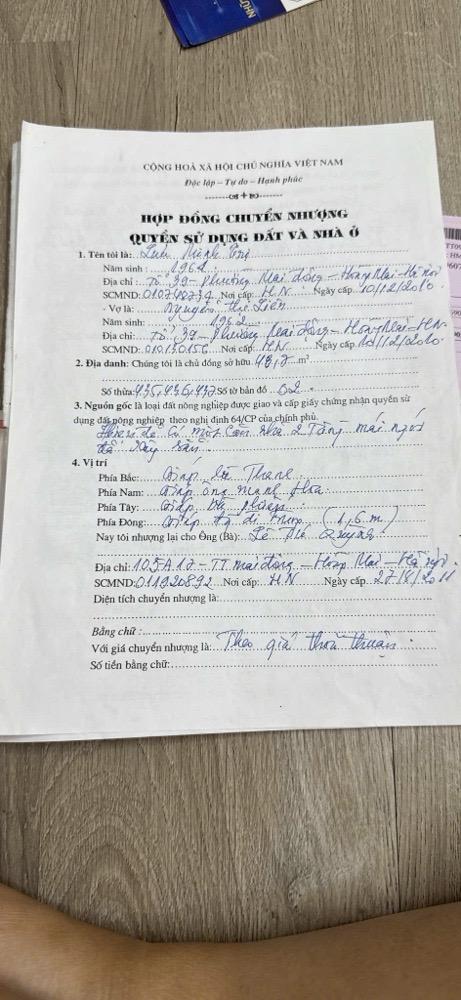 CỘNG HOÀ XÃ HỘI CHỦ NGHĨA VIỆT NAM
Độc lập – Tự do – Hạnh phúc
HỢP ĐỒNG CHUYỂN NHƯỢNG
QUYỀN SỬ DỤNG ĐẤT VÀ NHÀ Ở
1. Tên tôi là:
Năm sinh : 1962
Địa chỉ : Tổ 39 - Phường Mai động - Hoàng Mai - Hà nội
SCMND: Nơi cấp: H.N Ngày cấp 10/12/2010
- Vợ là: Nguyễn Thị Liên
Năm sinh: 1962
Địa chỉ: Tổ 39 - Phường Mai động - Hoàng Mai - HN
SCMND: 010130156 Nơi cấp: H.N Ngày cấp 10/12/2010
2. Địa danh: Chúng tôi là chủ đồng sở hữu 48,7 m²
Số thửa 435,436,437 Số tờ bản đồ 02
3. Nguồn gốc là loại đất nông nghiệp được giao và cấp giấy chứng nhận quyền sử
dụng đất nông nghiệp theo nghị định 64/CP của chính phủ.
có một căn nhà 2 tầng mái ngói
đã xây sẵn
4. Vị trí
Phía Bắc: Giáp Thanh
Phía Nam: Giáp ông Mạnh Hoà
Phía Tây: Giáp
Phía Đông: Giáp đi (1,6 m)
Nay tôi nhượng lại cho Ông (Bà): Lê Thị Quỳnh
Địa chỉ: 105A17 - TT mai động - Hoàng Mai - Hà nội
SCMND: 011920892 Nơi cấp: H.N Ngày cấp 27/8/2011
Diện tích chuyển nhượng là:
Bằng chữ :
Với giá chuyển nhượng là: Theo giá thoả thuận
Số tiền bằng chữ: